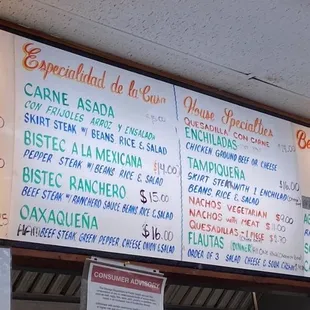 Especialidad de la Casa
CARNE ASADA
CON FRIJOLES ARROZ Y ENSALADA
SKIRT STEAK W/ BEANS RICE & SALAD
BISTEC A LA MEXICANA $14.00
PEPPER STEAK W/ BEANS RICE & SALAD
BISTEC RANCHERO $15.00
BEEF STEAK W/ RANCHERO SAUCE, BEANS RICE & SALAD
OAXAQUEÑA $16.00
BEEF STEAK, GREEN PEPPER, CHEESE ONION & SALAD
House Specialties
QUESADILLA CON CARNE
ENCHILADAS
CHICKEN GROUND BEEF OR CHEESE
TAMPIQUEÑA $16.00
SKIRT STEAK WITH 1 ENCHILADA
BEANS RICE & SALAD
NACHOS VEGETARIAN
NACHOS WITH MEAT
QUESADILLAS - 1 PIECE
FLAUTAS (DINNER)
ORDER OF 3 SALAD CHEESE & SOUR CREAM
CONSUMER ADVISORY